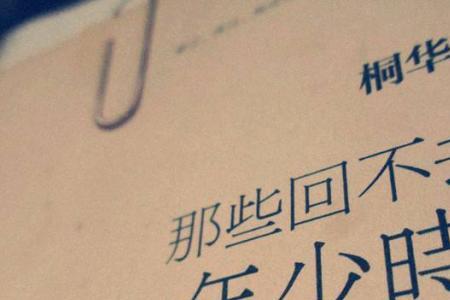 桐华
那些回不
年少時